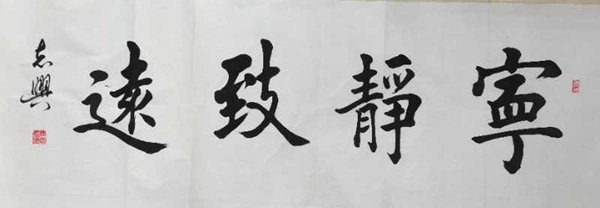 寧靜致遠
志興